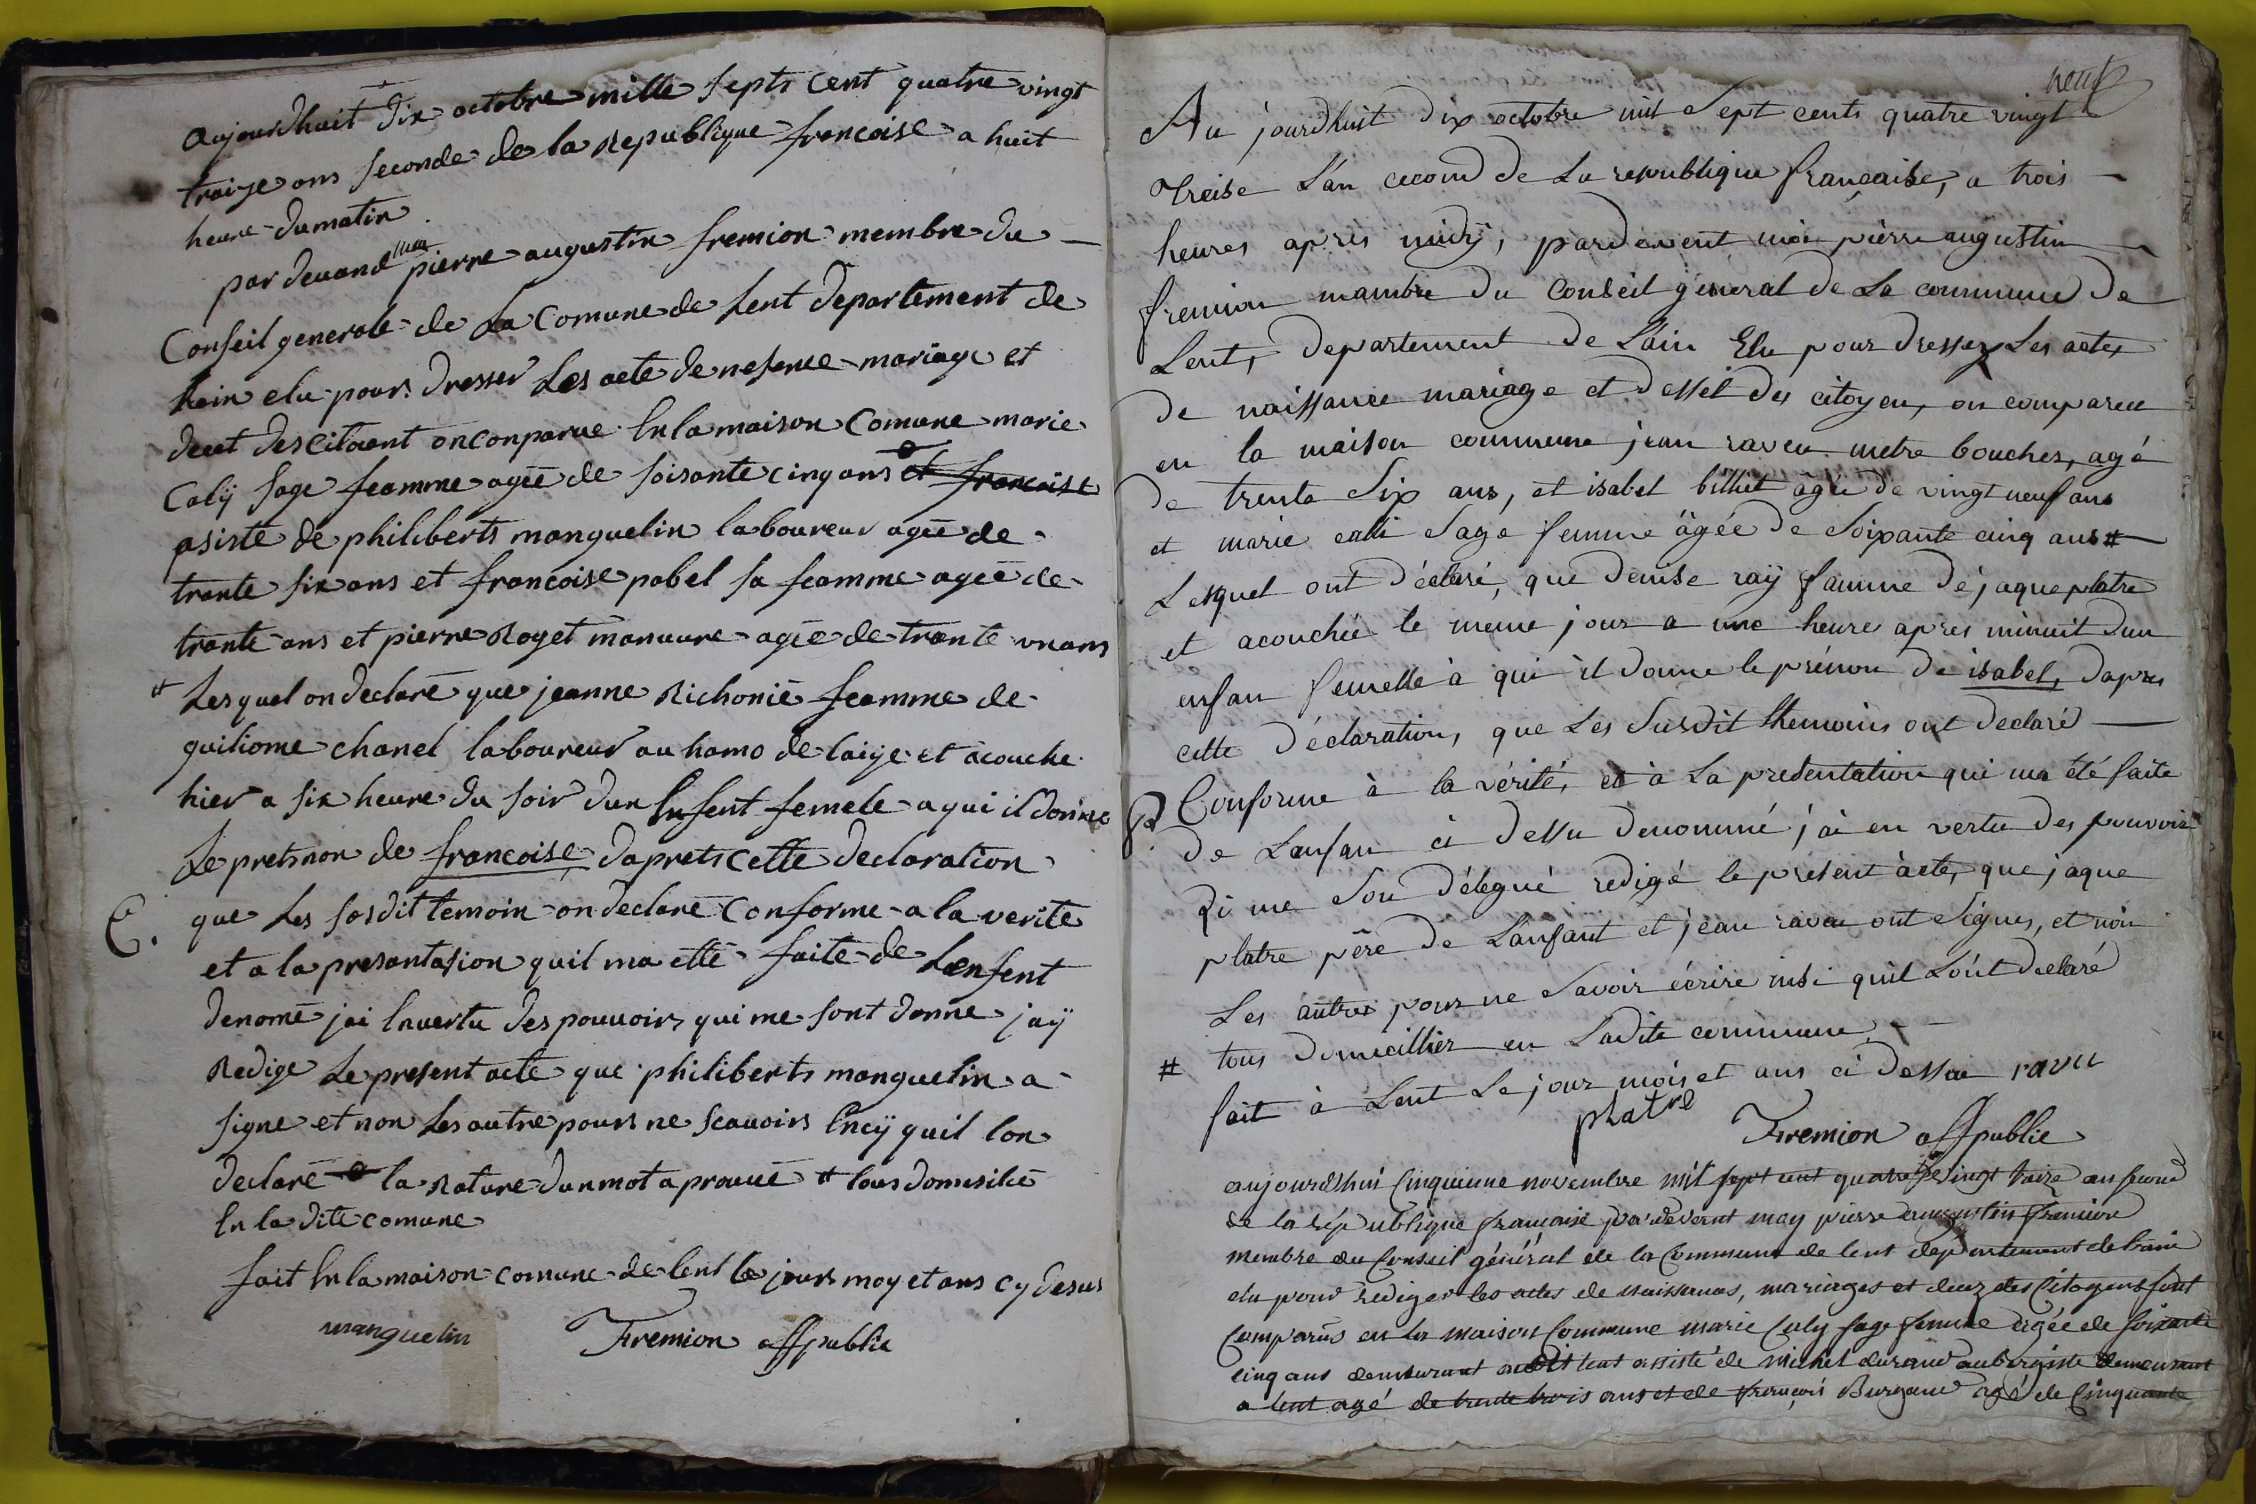 aujourdhuit dix octobre mille septs cent quatre vingt
traize ans seconde de la Republique francoise a huit
heure du matin
par devand moy pierre augustin fremion membre du
Conseil generale de La Comune de Lent departement de
Lain elu pours dresser Les acte de nesence mariage et
decet des citoient on conparue En la maison Comune marie
Calÿ sage feamme agée de soisante cinq ans et francoise
asisté de philiberts manguelin laboureur agée de
trante six ans et francoise pobel sa feamme agée de
trante ans et pierre Royet manuure agée de trante un ans
# Lesquel on declaré que jeanne Richonié feamme de
guiliome chanel laboureur au hamo de laige et acouche
hier a six heure du soir dun Enfent femele a qui il donne
Le pretsnon de francoise daprets cette declaration
que Les sosdit temoin on declaré Conforme a la verité
et a la presantasion quil ma etté faite de Lenfent
E.
denomé jai En vertu des pouvoirs qui me sont donne jaÿ
Redige Le present acte que philiberts manguelin a
signe et non Les autre pours ne scavoirs Encÿ quil lon
declaré la Rature dun mot aprouué # tous domisilié
En la dite comune
fait En la maison comune de lent le jours moy et ans cy desus
manguelin Fremion offpublic
neuf
Au jourdhuit dix octobre mil Sept cents quatre vingt
Treise L'an cecond de La republique française, a trois
heures après midÿ, pardevent moi pierre augustin
fremion mambre du Conseil géneral de La commune de
Lent, departement de L'ain Elu pour dresser Les actes
de naissance mariage et dessét des citoyen, on comparue
en la maison commune jean raveu metre boucher, agé
de trente Six ans, et isabel billiet agée de vingt neuf ans
et marie cali Sage femme âgée de Soixante cinq ans #
Lesquel ont déclaré, que denise raÿ famme de jaque platre
et acouchée le meme jour a une heure apres minuit dun
enfan femelle à qui il donne le prénon de isabel, dapres
cette déclaration, que Les Susdit themoins ont declaré
Conforme à la vérité, et à La presentation qui ma été faite
P.
de Lanfan ci dessu denommé j'ai en vertu des pouvoir
Qi me Son délegué redigé le présent acte, que jaque
platre pére de Lanfant et jean raveu ont Signes, et non
Les autres pour ne Savoir écrire insi quil Lont declaré
# tous domicillier en Ladite commune
fait à Lent Le jour mois et ans ci dessu ravu
platre
Fremion offpublic
aujourdhui Cinquieme novembre mil sept cent quatre vingt traize an second
de la république française pardevant moy pierre augustin fremion
membre du Conseil général de la Commune de lent departement de lain
elu pour rediger les actes de naissances, mariages et decez des Citoyens sont
comparus en la maison Commune marie Caly sage femme agée de soixante
cinq ans demeurant audit lent assisté de michel durand aubergiste demeurant
a lent agé de trente trois ans et de françois Burgaud agé de Cinquante